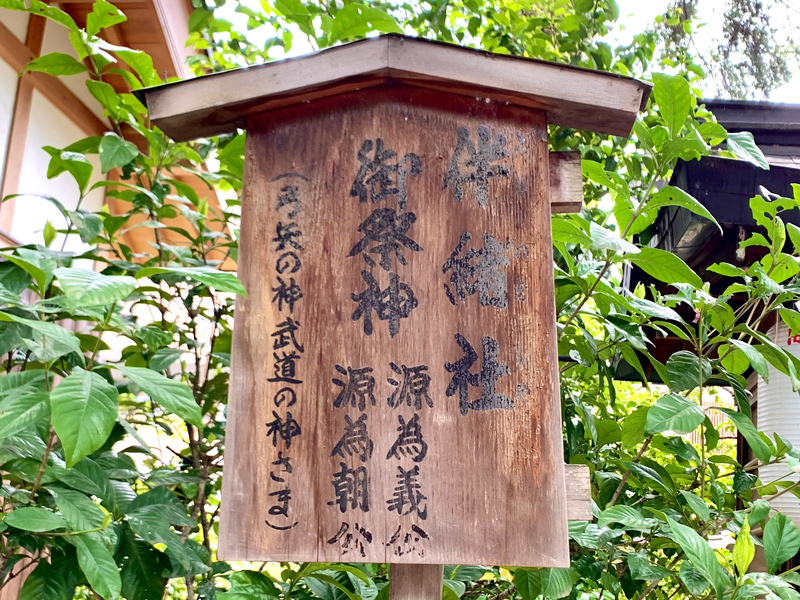 伴緒社
御祭神
源為義公
源為朝公
(弓矢の神武道の神さま)